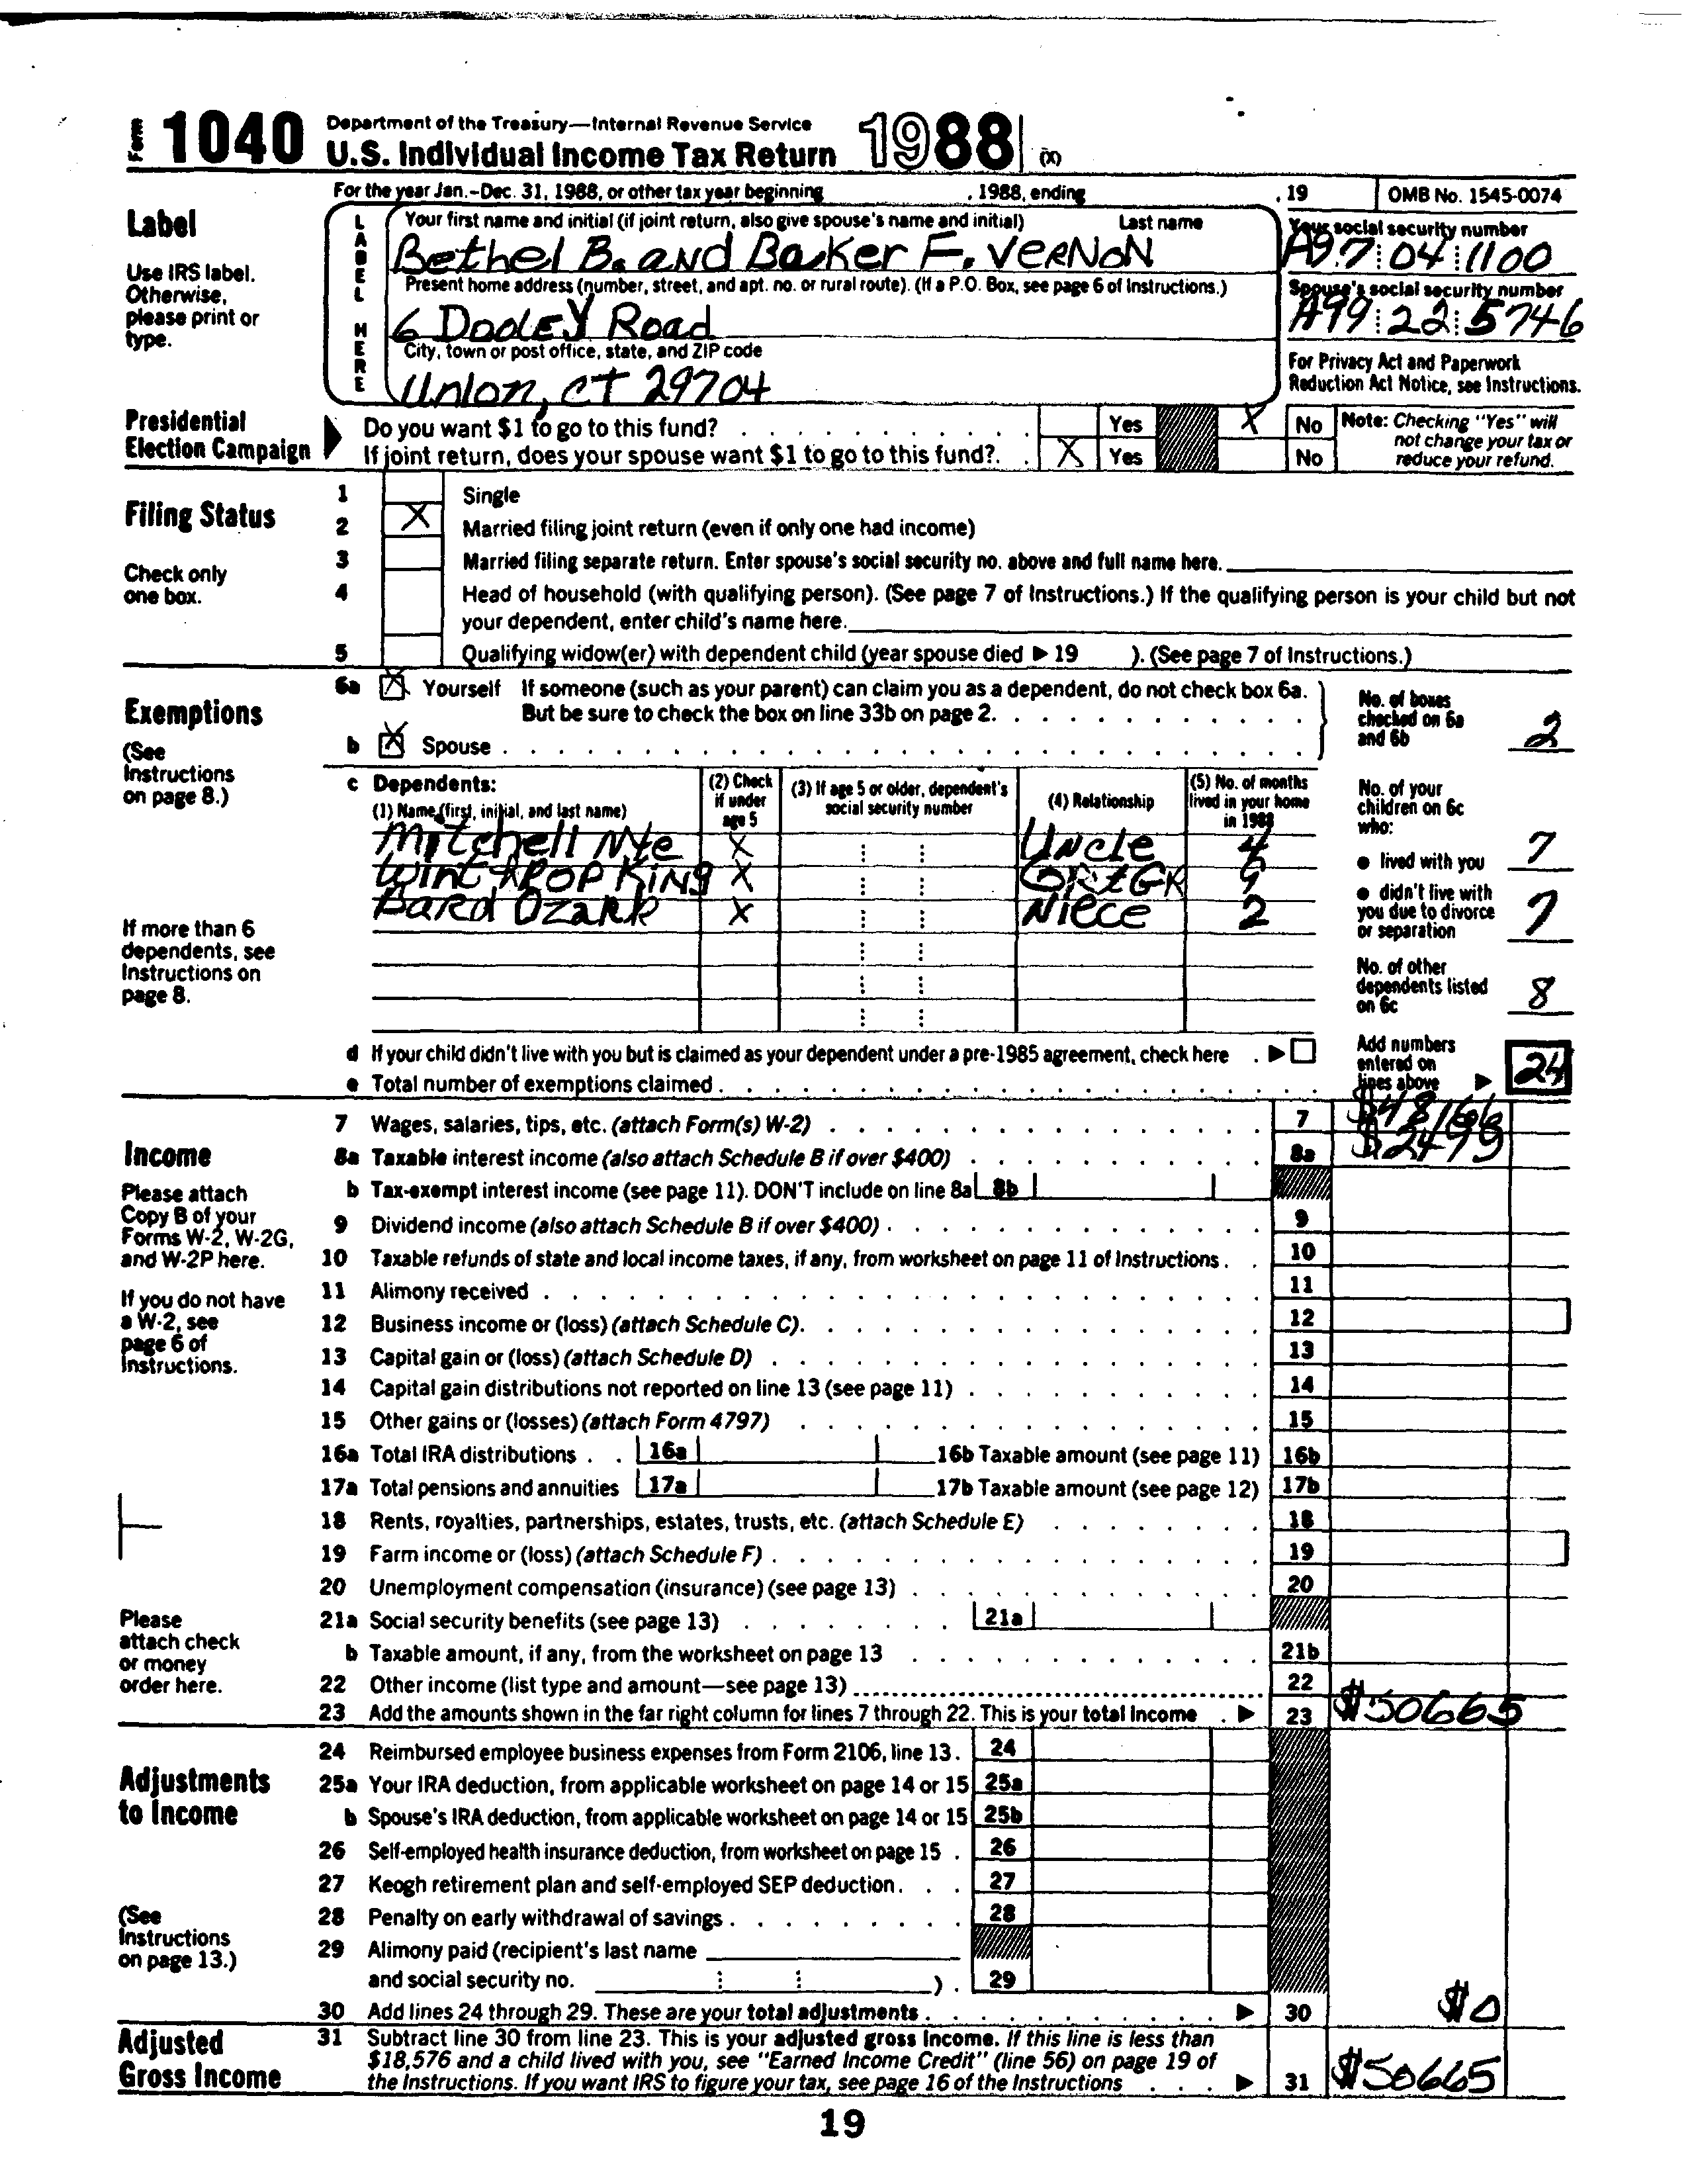 Form 1040 Department of the Treasury—Internal Revenue Service
U.S. Individual Income Tax Return 1988 (X)
For the year Jan.-Dec. 31, 1988, or other tax year beginning , 1988, ending , 19 OMB No. 1545-0074
Label
Use IRS label. Otherwise, please print or type.
LABEL HERE
Your first name and initial (if joint return, also give spouse's name and initial) Last name
Bethel B. and Baker F. VERNON
Your social security number
A97 04 1100
Present home address (number, street, and apt. no. or rural route). (If a P.O. Box, see page 6 of Instructions.)
6 DOOLEY Road
Spouse's social security number
A99 22 5746
City, town or post office, state, and ZIP code
Union, CT 29704
For Privacy Act and Paperwork Reduction Act Notice, see Instructions.
Presidential Election Campaign
Do you want $1 to go to this fund? Yes X No
If joint return, does your spouse want $1 to go to this fund?. X Yes No
Note: Checking "Yes" will not change your tax or reduce your refund.
Filing Status
Check only one box.
1 Single
2 X Married filing joint return (even if only one had income)
3 Married filing separate return. Enter spouse's social security no. above and full name here.
4 Head of household (with qualifying person). (See page 7 of Instructions.) If the qualifying person is your child but not
your dependent, enter child's name here.
5 Qualifying widow(er) with dependent child (year spouse died ▶ 19 ). (See page 7 of Instructions.)
Exemptions
(See Instructions on page 8.)
6a X Yourself If someone (such as your parent) can claim you as a dependent, do not check box 6a.
But be sure to check the box on line 33b on page 2.
b X Spouse
No. of boxes checked on 6a and 6b 2
c Dependents:
(1) Name (first, initial, and last name) (2) Check if under age 5 (3) If age 5 or older, dependent's social security number (4) Relationship (5) No. of months lived in your home in 1988
Mitchell Nye X Uncle 4
WintHROP KING X
Bard Ozark X Niece 2
If more than 6 dependents, see Instructions on page 8.
No. of your children on 6c who:
● lived with you 7
● didn't live with you due to divorce or separation 7
No. of other dependents listed on 6c 8
d If your child didn't live with you but is claimed as your dependent under a pre-1985 agreement, check here ▶
e Total number of exemptions claimed
Add numbers entered on lines above ▶ 24
Income
Please attach Copy B of your Forms W-2, W-2G, and W-2P here.
If you do not have a W-2, see page 6 of Instructions.
Please attach check or money order here.
7 Wages, salaries, tips, etc. (attach Form(s) W-2) 7 $48166
8a Taxable interest income (also attach Schedule B if over $400) 8a $2499
b Tax-exempt interest income (see page 11). DON'T include on line 8a 8b
9 Dividend income (also attach Schedule B if over $400) 9
10 Taxable refunds of state and local income taxes, if any, from worksheet on page 11 of Instructions 10
11 Alimony received 11
12 Business income or (loss) (attach Schedule C) 12
13 Capital gain or (loss) (attach Schedule D) 13
14 Capital gain distributions not reported on line 13 (see page 11) 14
15 Other gains or (losses) (attach Form 4797) 15
16a Total IRA distributions 16a 16b Taxable amount (see page 11) 16b
17a Total pensions and annuities 17a 17b Taxable amount (see page 12) 17b
18 Rents, royalties, partnerships, estates, trusts, etc. (attach Schedule E) 18
19 Farm income or (loss) (attach Schedule F) 19
20 Unemployment compensation (insurance) (see page 13) 20
21a Social security benefits (see page 13) 21a
b Taxable amount, if any, from the worksheet on page 13 21b
22 Other income (list type and amount—see page 13) 22
23 Add the amounts shown in the far right column for lines 7 through 22. This is your total income ▶ 23 $50665
Adjustments to Income
(See Instructions on page 13.)
24 Reimbursed employee business expenses from Form 2106, line 13 24
25a Your IRA deduction, from applicable worksheet on page 14 or 15 25a
b Spouse's IRA deduction, from applicable worksheet on page 14 or 15 25b
26 Self-employed health insurance deduction, from worksheet on page 15 26
27 Keogh retirement plan and self-employed SEP deduction 27
28 Penalty on early withdrawal of savings 28
29 Alimony paid (recipient's last name
and social security no. ) 29
30 Add lines 24 through 29. These are your total adjustments ▶ 30 $0
Adjusted Gross Income
31 Subtract line 30 from line 23. This is your adjusted gross income. If this line is less than
$18,576 and a child lived with you, see "Earned Income Credit" (line 56) on page 19 of
the Instructions. If you want IRS to figure your tax, see page 16 of the Instructions ▶ 31 $50665
19